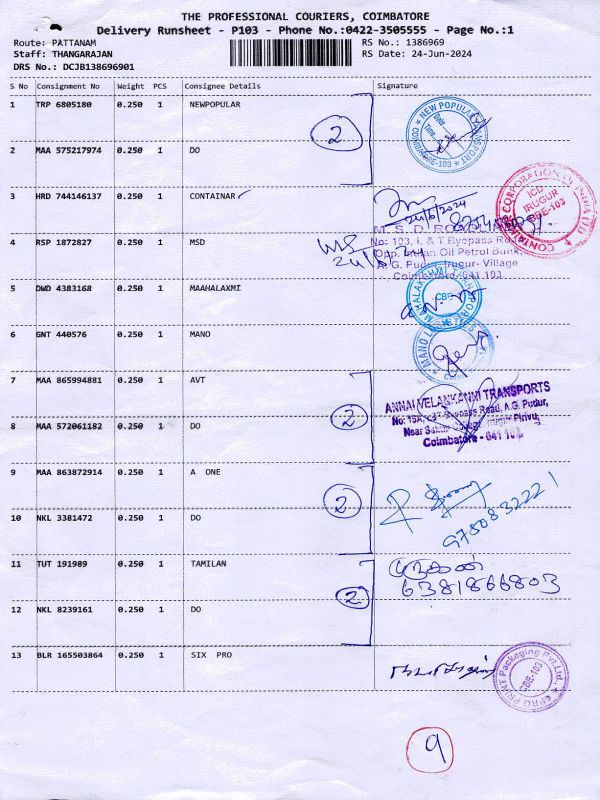 THE PROFESSIONAL COURIERS, COIMBATORE
Delivery Runsheet - P103 - Phone No.:0422-3505555 - Page No.:1
Route: PATTANAM
RS No.: 1386969
Staff: THANGARAJAN
RS Date: 24-Jun-2024
DRS No.: DCJB138696901
S No Consignment No Weight PCS Consignee Details Signature
1 TRP 6805180 0.250 1 NEWPOPULAR
2
2 MAA 575217974 0.250 1 DO
3 HRD 744146137 0.250 1 CONTAINAR
24/6/2024
ICD
IRUGUR
CBE-103
4 RSP 1872827 0.250 1 MSD
No: 103, L & T Byepass Road
Opp. Indian Oil Petrol Bunk,
Irugur- Village
Coimbatore-641 103
5 DWD 4383168 0.250 1 MAAHALAXMI
CBE
6 GNT 440576 0.250 1 MANO
7 MAA 865994881 0.250 1 AVT
ANNAI VELANKANNI TRANSPORTS
A.G. Pudur,
Coimbatore - 641 103
2
8 MAA 572061182 0.250 1 DO
9 MAA 863872914 0.250 1 A ONE
9750832221
2
10 NKL 3381472 0.250 1 DO
11 TUT 191989 0.250 1 TAMILAN
முருகன்
6381866803
2
12 NKL 8239161 0.250 1 DO
13 BLR 165503864 0.250 1 SIX PRO
CBE-103
9